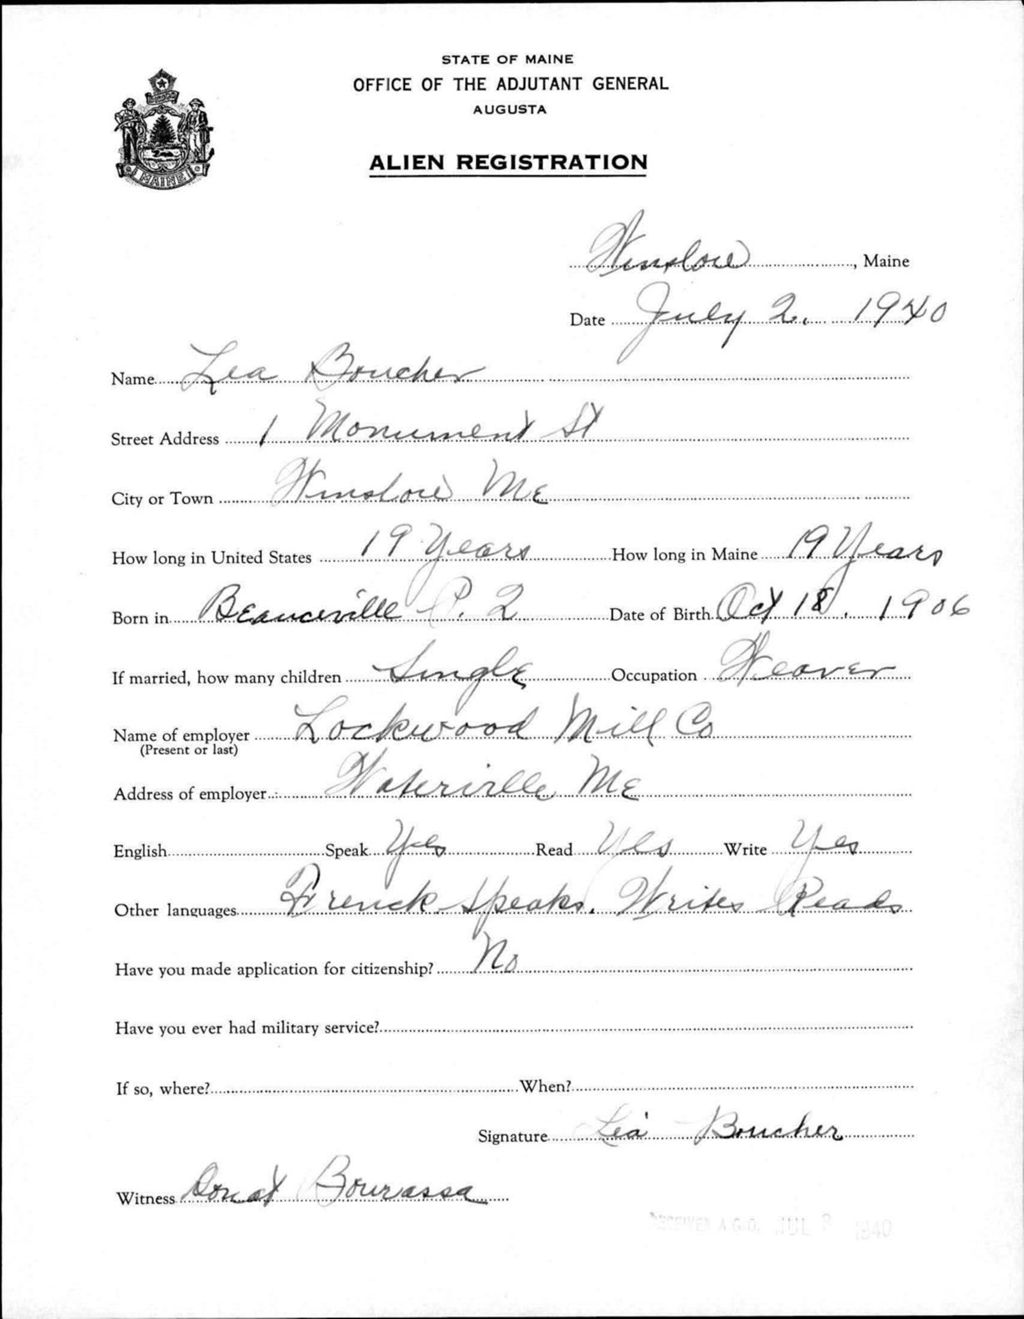 STATE OF MAINE
OFFICE OF THE ADJUTANT GENERAL
AUGUSTA
ALIEN REGISTRATION
MAINE
Winslow, Maine
Date July 2, 1940
Name Lea Boucher
Street Address 1 Monument St
City or Town Winslow Me
How long in United States 19 Years How long in Maine 19 Years
Born in Beauceville P. Q Date of Birth Oct 18, 1906
If married, how many children Single Occupation Weaver
Name of employer Lockwood Mill Co
(Present or last)
Address of employer Waterville Me
English Speak Yes Read Yes Write Yes
Other languages French Speaks. Writes Reads
Have you made application for citizenship? No
Have you ever had military service?
If so, where? When?
Signature Lea Boucher
Witness Donat Bourassa
RECEIVED A.G.O. JUL 1940